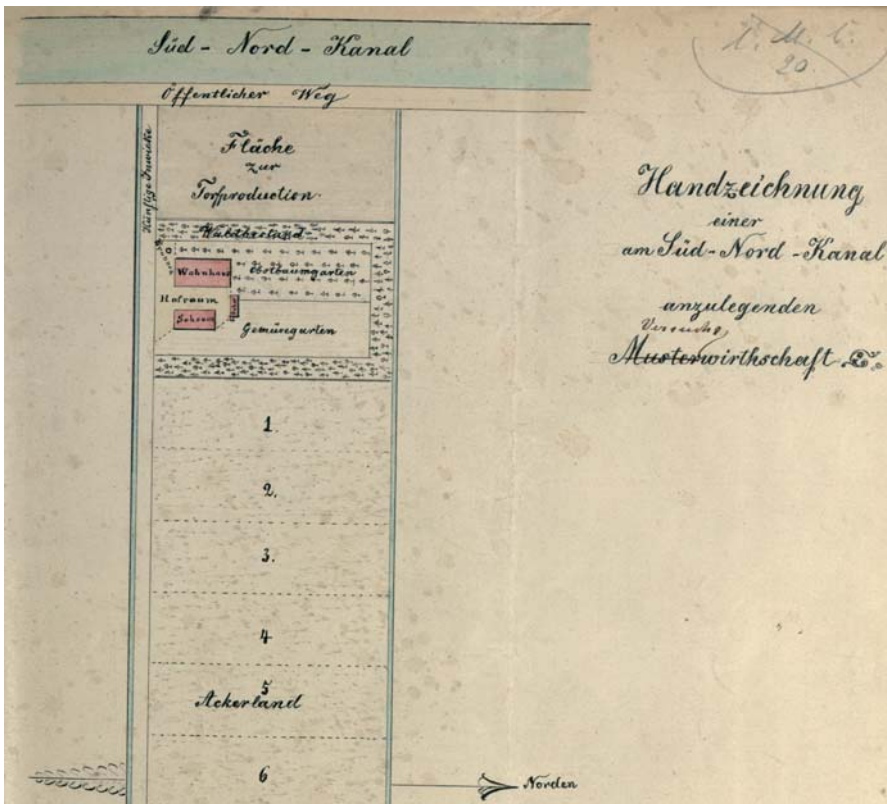 Süd - Nord - Kanal
Öffentlicher Weg
Künftige Inwieke
Fläche
zur
Torfproduction
Obstbaumgarten
Wohnhaus
Hofraum
Gemüsegarten
1.
2.
3.
4
5
Ackerland
6
Norden
20.
Handzeichnung
einer
am Süd-Nord-Kanal
anzulegenden
Versuchs
Musterwirthschaft